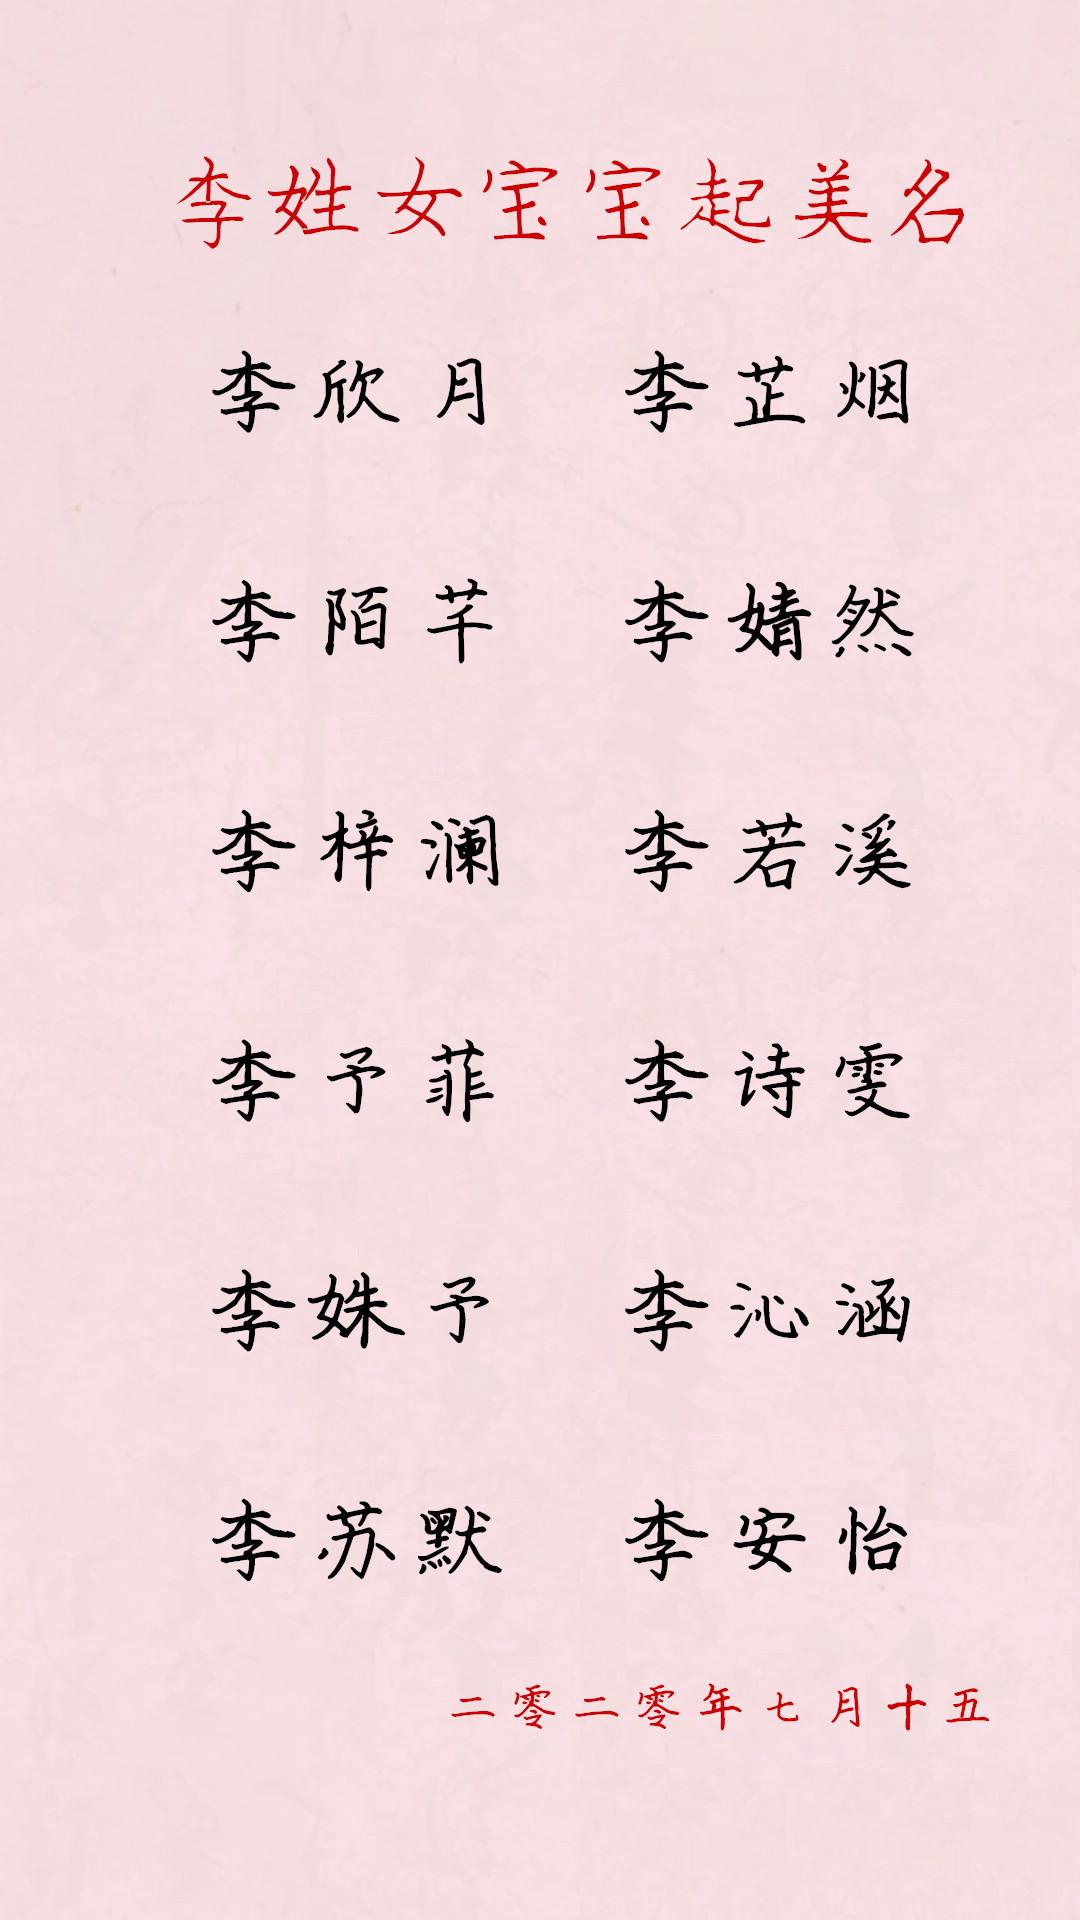 李姓女宝宝起美名
李欣月 李芷烟
李陌芊 李婧然
李梓澜 李若溪
李予菲 李诗雯
李姝予 李沁涵
李苏默 李安怡
二零二零年七月十五